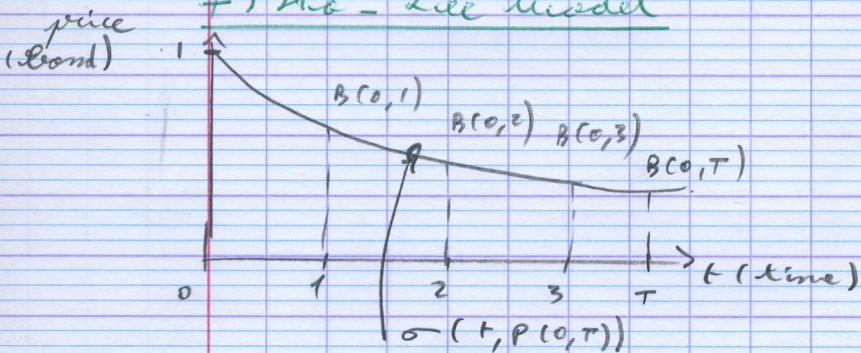 Ho - Lee Model
price
(bond)
1
B(0,1)
B(0,2)
B(0,3)
B(0,T)
0 1 2 3 T
t (time)
σ(t, P(0,T))